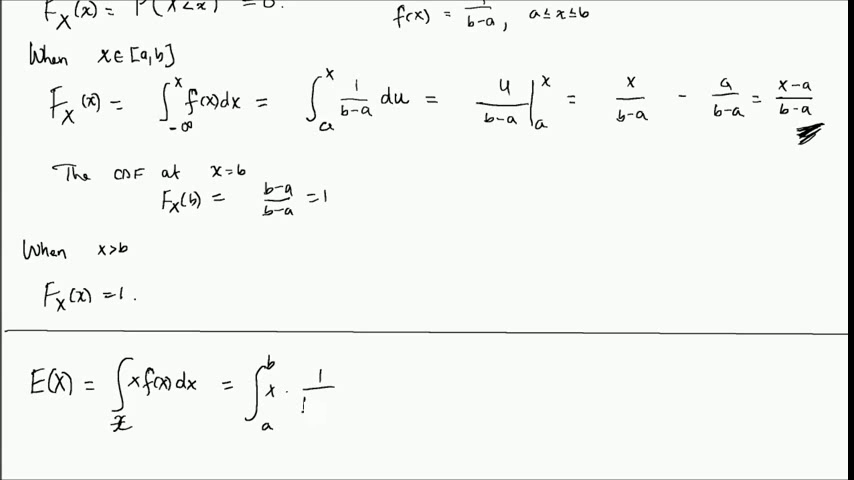 F_X(x) = P(X<x) = 0.
f(x) = 1/(b-a), a ≤ x ≤ b
When x ∈ [a,b]
F_X(x) = ∫_{-∞}^{x} f(x)dx = ∫_a^x 1/(b-a) du = u/(b-a) |_a^x = x/(b-a) - a/(b-a) = (x-a)/(b-a)
The CDF at x=b
F_X(b) = (b-a)/(b-a) = 1
When x>b
F_X(x) = 1.
E(X) = ∫_x x f(x) dx = ∫_a^b x · 1/